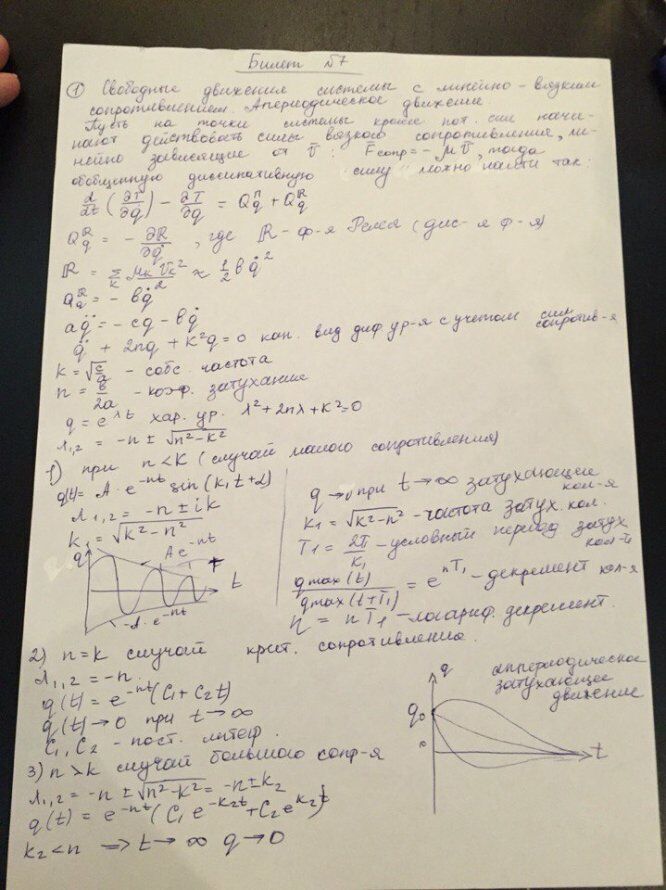 Билет №7
① Свободные движения системы с линейно-вязким
сопротивлением. Апериодическое движение
Пусть на точки системы кроме пот. сил начи-
нают действовать силы вязкого сопротивления, ли-
нейно зависящие от V̄: F̄сопр = -μV̄, тогда
обобщенную диссипативную силу можно найти так:
d/dt (∂T/∂q̇) - ∂T/∂q = Q_q^п + Q_q^R
Q_q^R = - ∂R/∂q̇, где R - ф-я Релея (дис-я ф-я)
R = Σ_k μ_k V_k²/2 ≈ 1/2 b q̇²
Q_q^R = - bq̇
aq̈ = -cq - bq̇
q̈ + 2nq + k²q = 0 кан. вид диф ур-я с учетом сил сопротив-я
k = √(c/a) - собс. частота
n = b/2a - коэф. затухание
q = e^λt хар. ур. λ² + 2nλ + k² = 0
λ1,2 = -n ± √(n² - k²)
1) при n < k (случай малого сопротивления)
q(t) = A · e^-nt sin(k₁t + α)
λ1,2 = -n ± ik
k₁ = √(k² - n²)
q
A e^-nt
t
-A · e^-nt
q → 0 при t → ∞ затухающие
кол-я
k₁ = √(k² - n²) - частота затух. кол.
T₁ = 2π/k₁ - условный период затух
кол-й
qmax(t)/qmax(t+T₁) = e^nT₁ - декремент кол-я
η = nT₁ - логариф. декремент.
2) n = k случай крит. сопротивление.
λ1,2 = -n.
q(t) = e^-nt (C₁ + C₂t)
q(t) → 0 при t → ∞
C₁, C₂ - пост. интегр.
q
q₀
0
t
аппериодическое
затухающее
движение
3) n > k случай большого сопр-я
λ1,2 = -n ± √(n² - k²) = -n ± k₂
q(t) = e^-nt (C₁ e^-k₂t + C₂ e^k₂t)
k₂ < n => t → ∞ q → 0